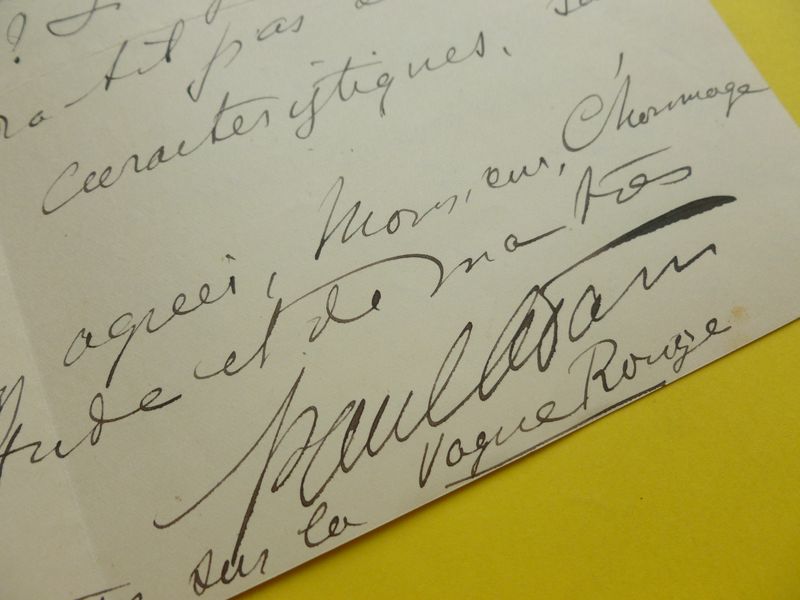 ? J
ra-t-il pas
caractéristiques.
agréer, Monsieur, l'hommage
tude et de ma très
Paul Adam
sur la Vague Rouge